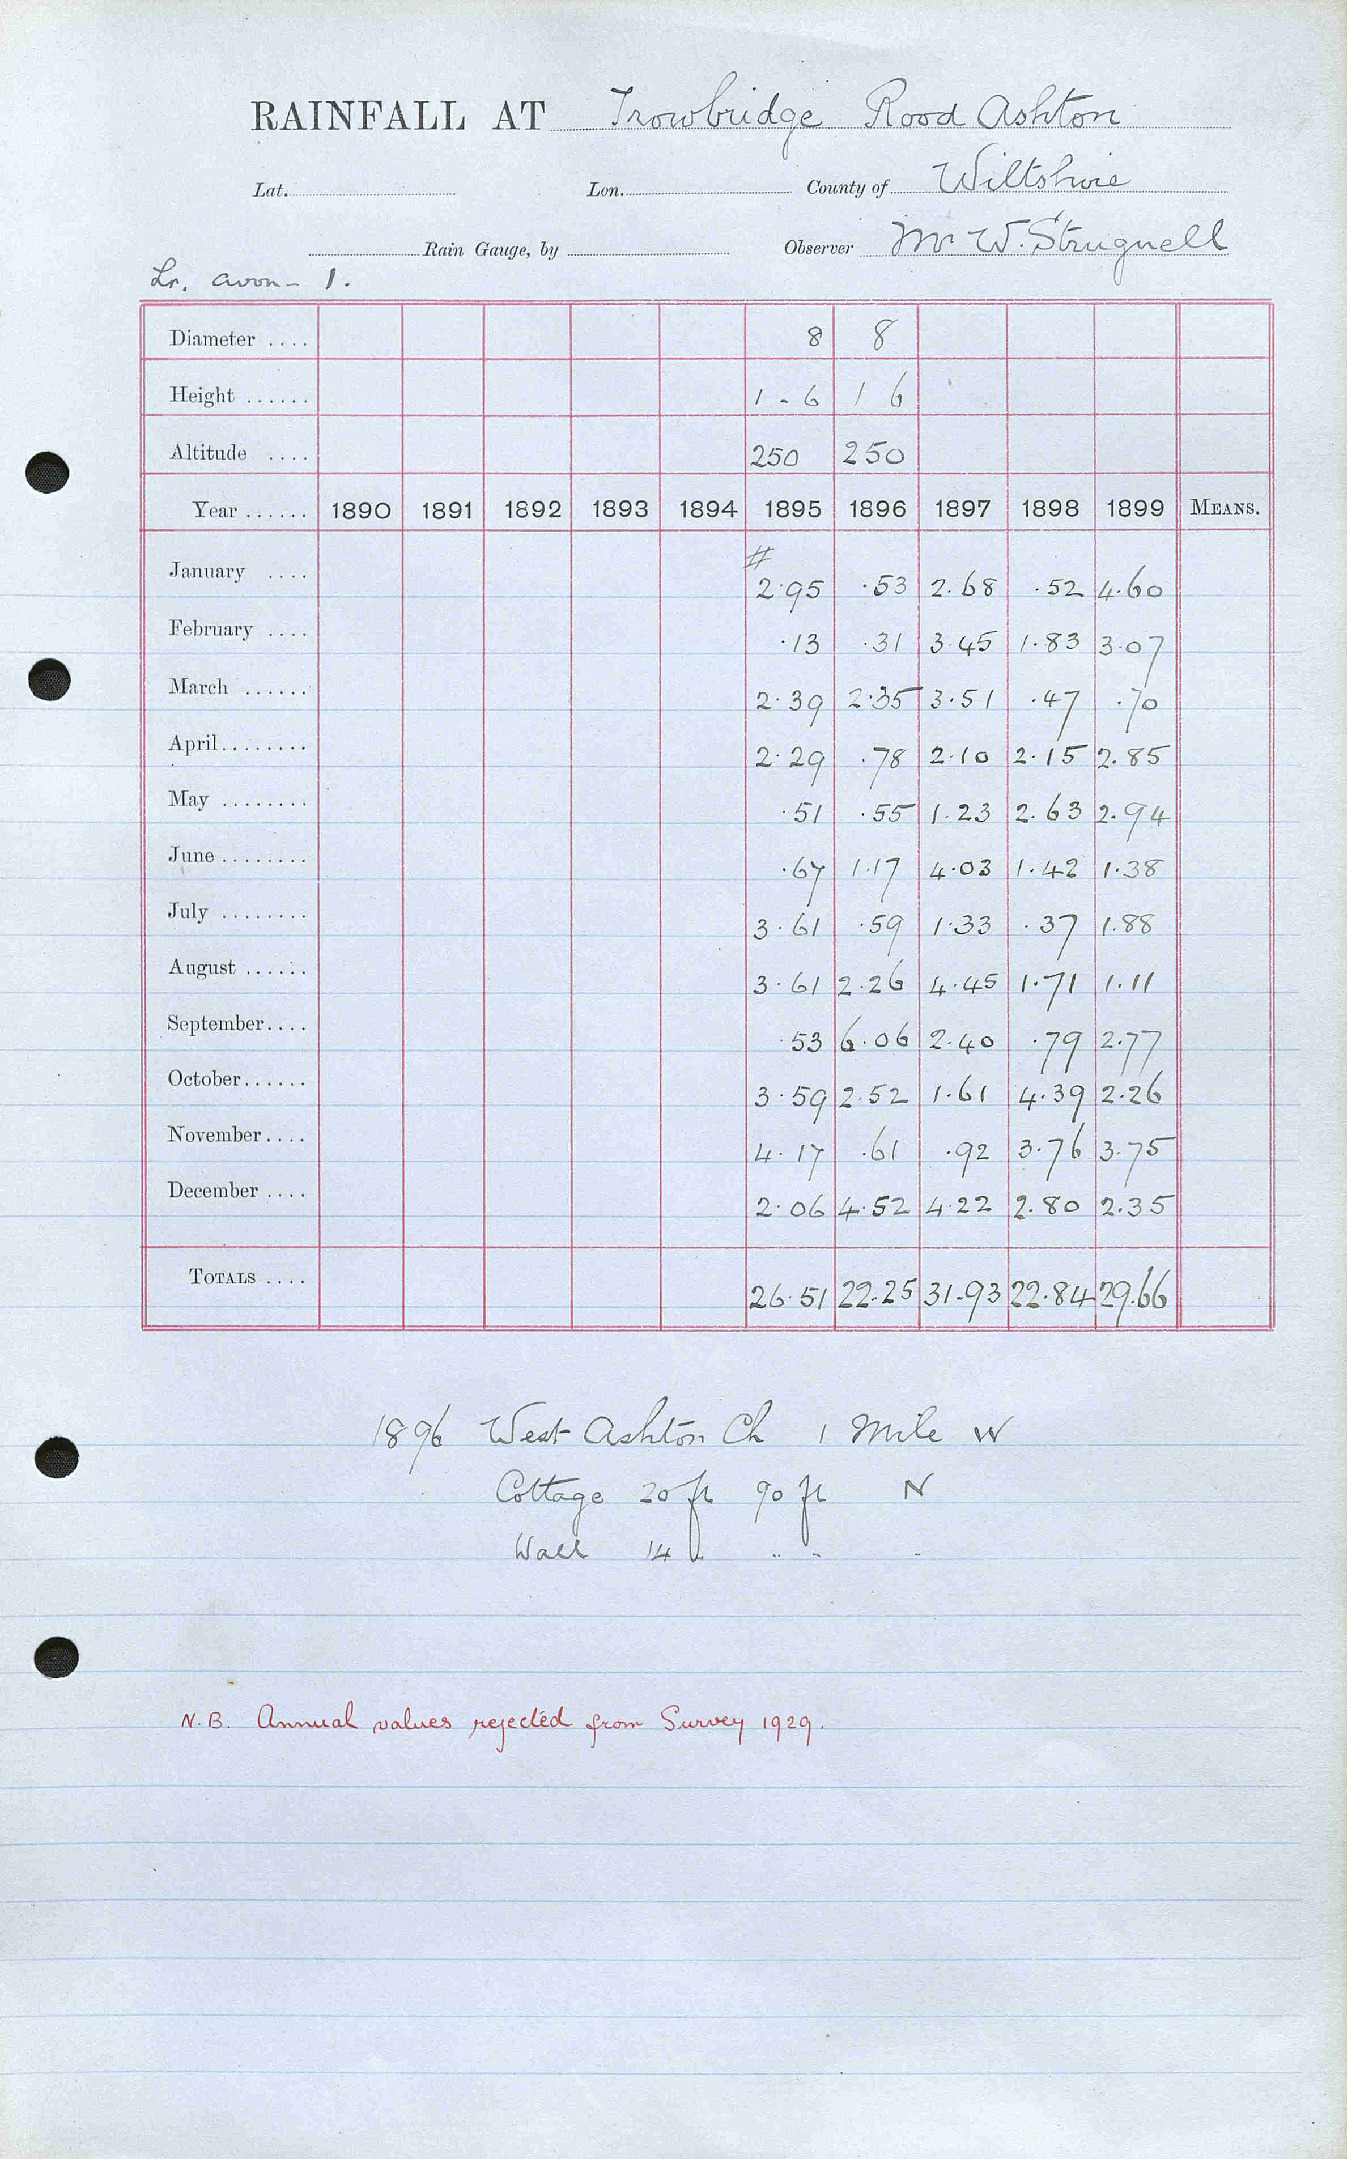 RAINFALL AT Trowbridge Rood Ashton
Lat. Lon. County of Wiltshire
Rain Gauge, by Observer Mr W. Strugnell
Lr. Avon - 1.
Diameter .... 8 8
Height ...... 1 - 6 1 6
Altitude .... 250 250
Year ...... 1890 1891 1892 1893 1894 1895 1896 1897 1898 1899 MEANS.
#
January .... 2.95 .53 2.68 .52 4.60
February .... .13 .31 3.45 1.83 3.07
March ...... 2.39 2.35 3.51 .47 .70
April........ 2.29 .78 2.10 2.15 2.85
May ........ .51 .55 1.23 2.63 2.94
June ........ .67 1.17 4.03 1.42 1.38
July ........ 3.61 .59 1.33 .37 1.88
August ...... 3.61 2.26 4.45 1.71 1.11
September.... .53 6.06 2.40 .79 2.77
October...... 3.59 2.52 1.61 4.39 2.26
November.... 4.17 .61 .92 3.76 3.75
December .... 2.06 4.52 4.22 2.80 2.35
TOTALS .... 26.51 22.25 31.93 22.84 29.66
1896 West Ashton Ch 1 Mile W
Cottage 20 ft 90 ft N
Wall 14 " " " "
N.B. Annual values rejected from Survey 1929.